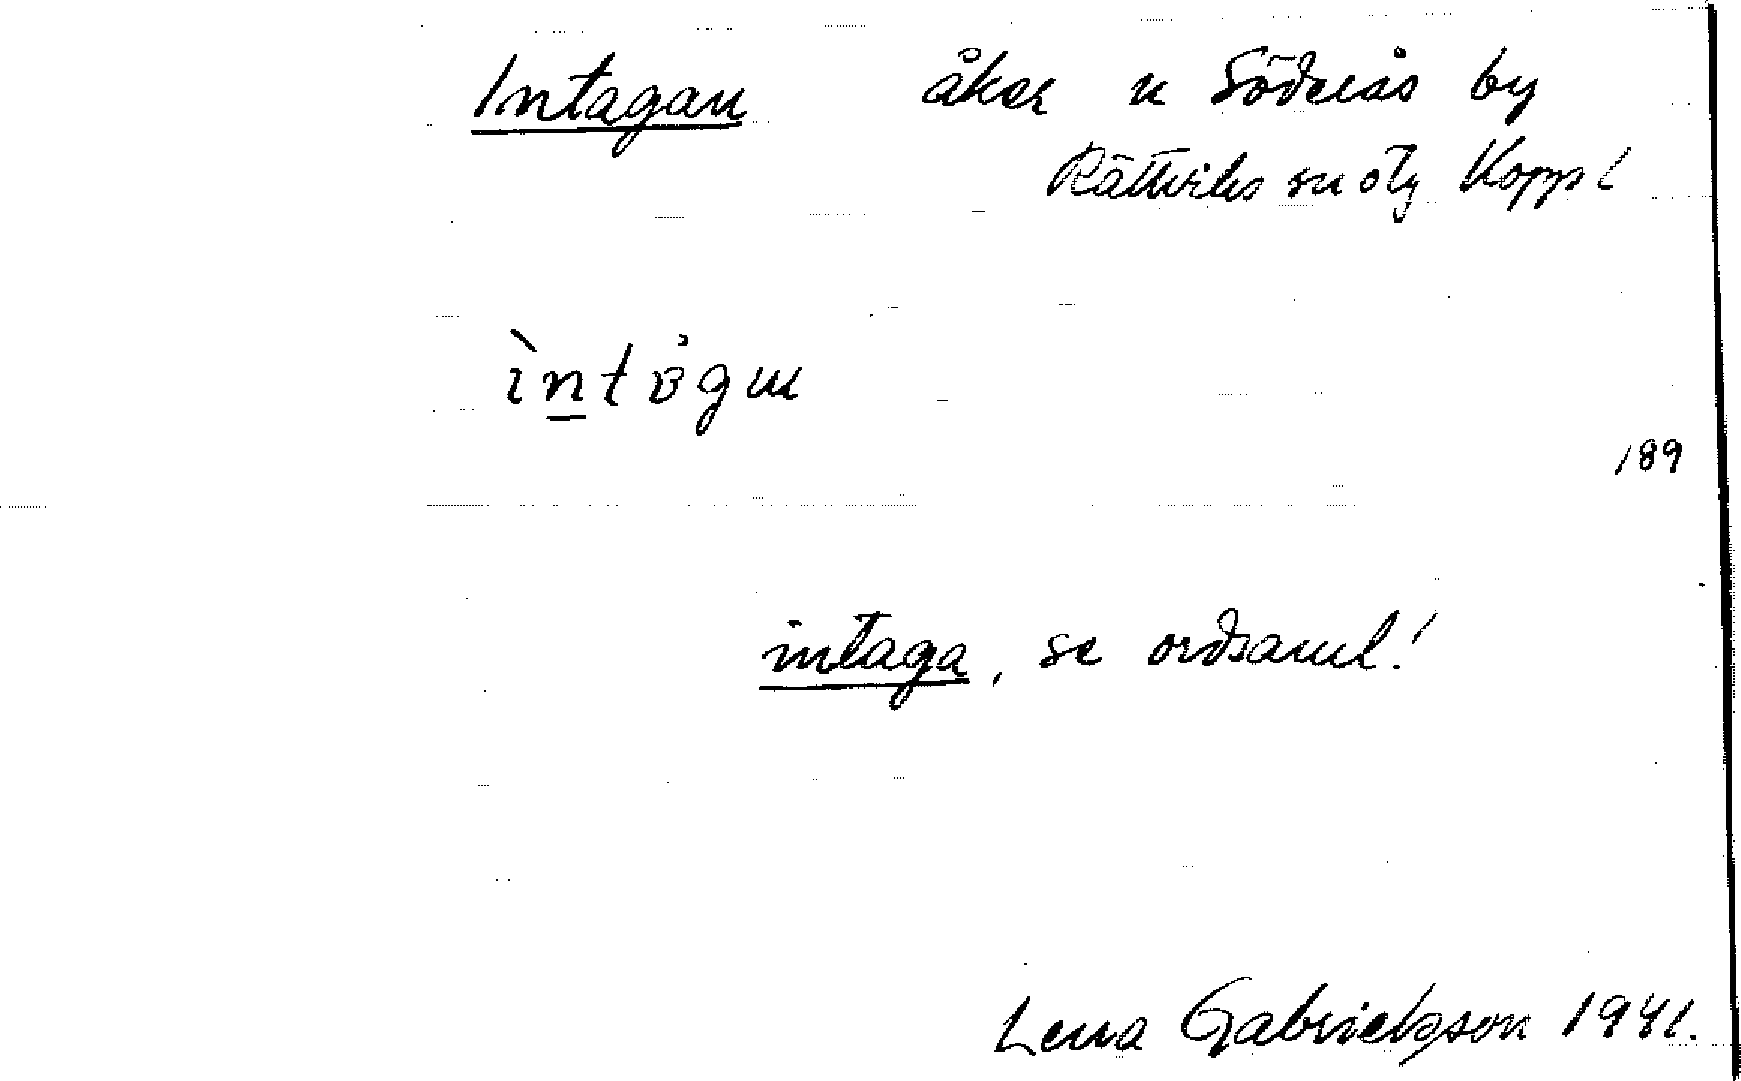 Intagan åker n Söderås by
Rättviks sn ötg Kopp. l
ìntɞ̊gɯ
189
intaga, se ordsaml.!
Lena Gabrielsson 1941.